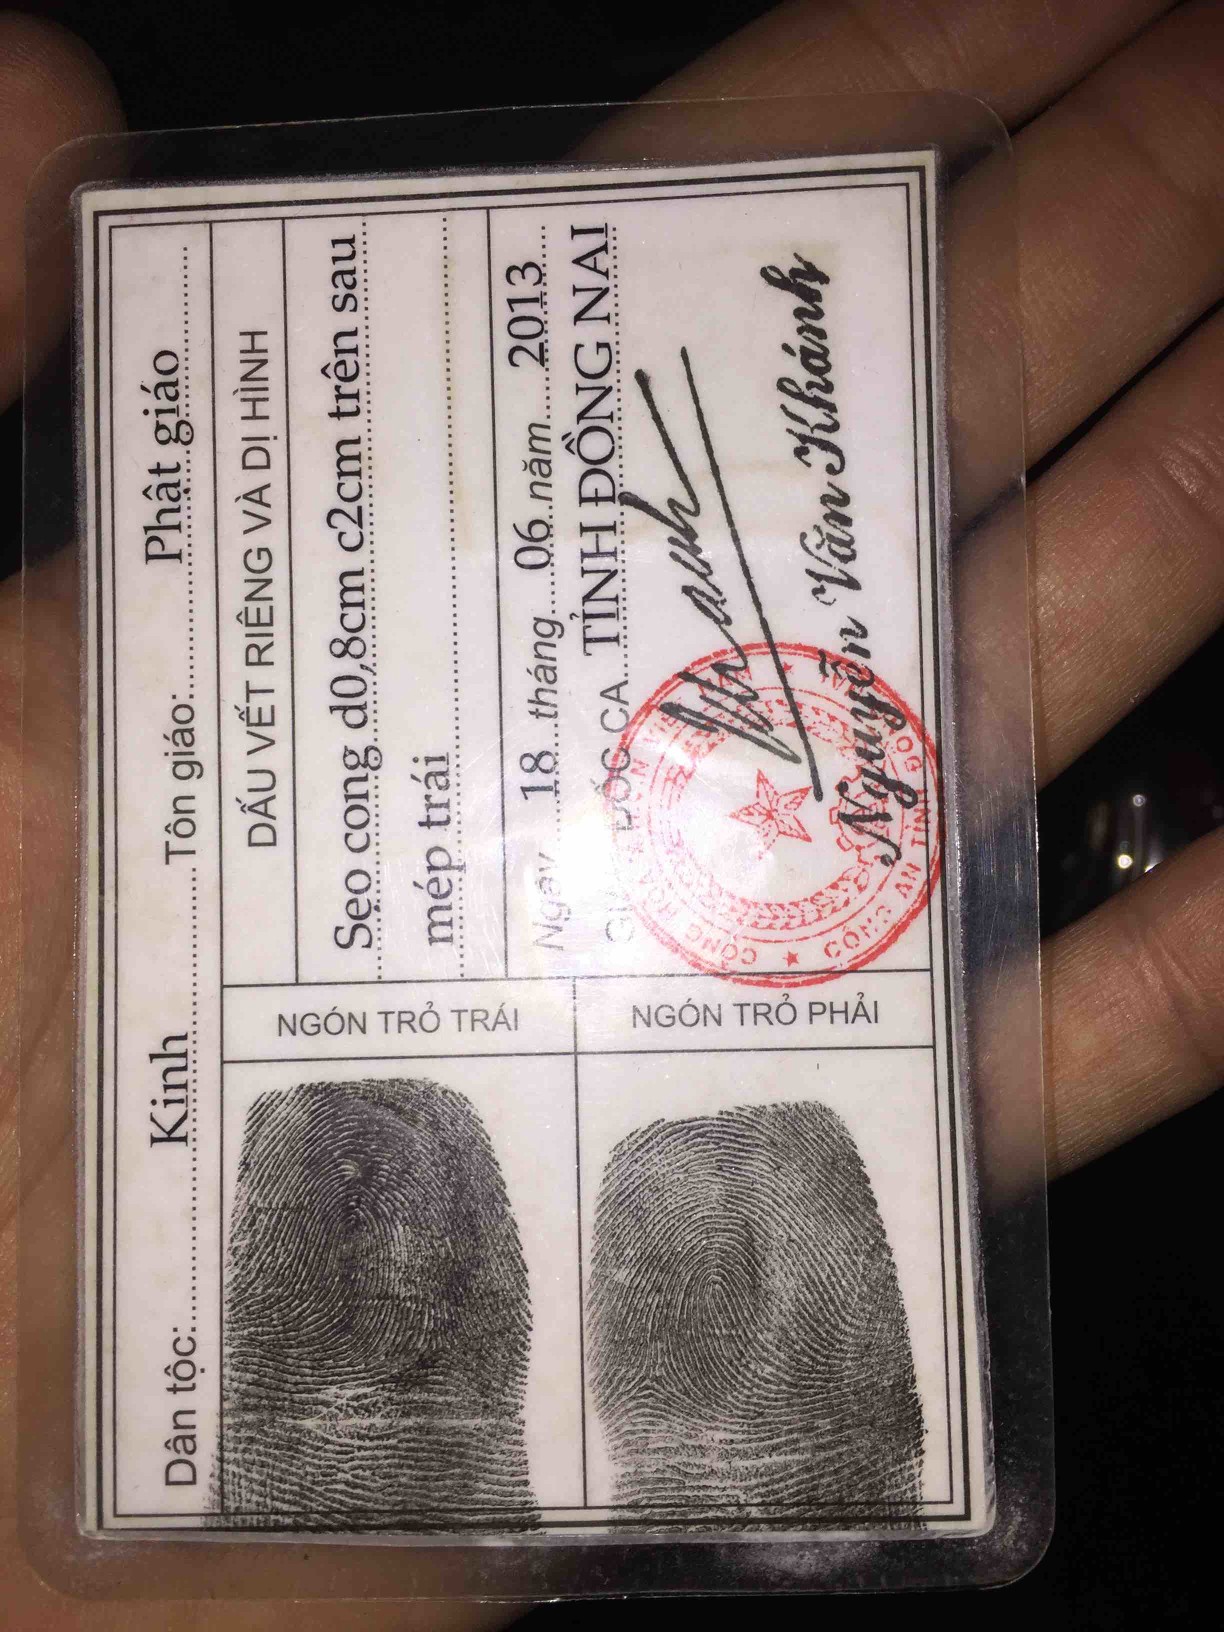 Dân tộc: Kinh Tôn giáo: Phật giáo
DẤU VẾT RIÊNG VÀ DỊ HÌNH
Sẹo cong d0,8cm c2cm trên sau
mép trái
Ngày 18 tháng 06 năm 2013
ĐỐC CA TỈNH ĐỒNG NAI
Nguyễn Văn Khánh
NGÓN TRỎ TRÁI
NGÓN TRỎ PHẢI
CÔNG AN TỈNH